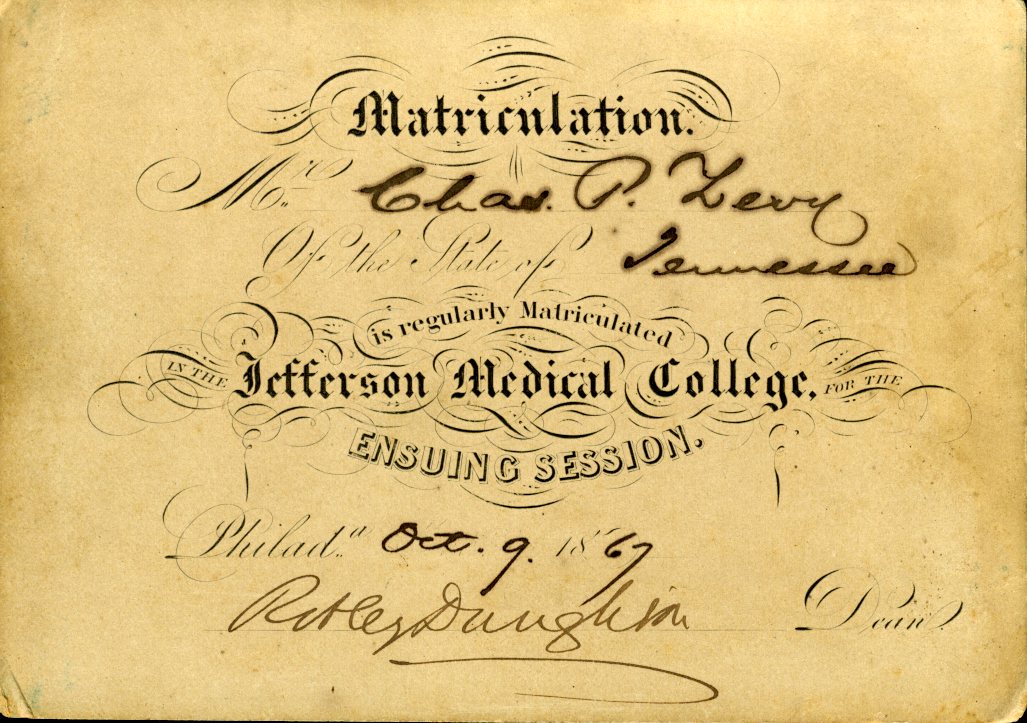 Matriculation.
Mr. Chas. P. Levy
Of the State of Tennessee
is regularly Matriculated
IN THE Jefferson Medical College, FOR THE
ENSUING SESSION.
Philada. Oct. 9. 1867
Robley Dunglison Dean.